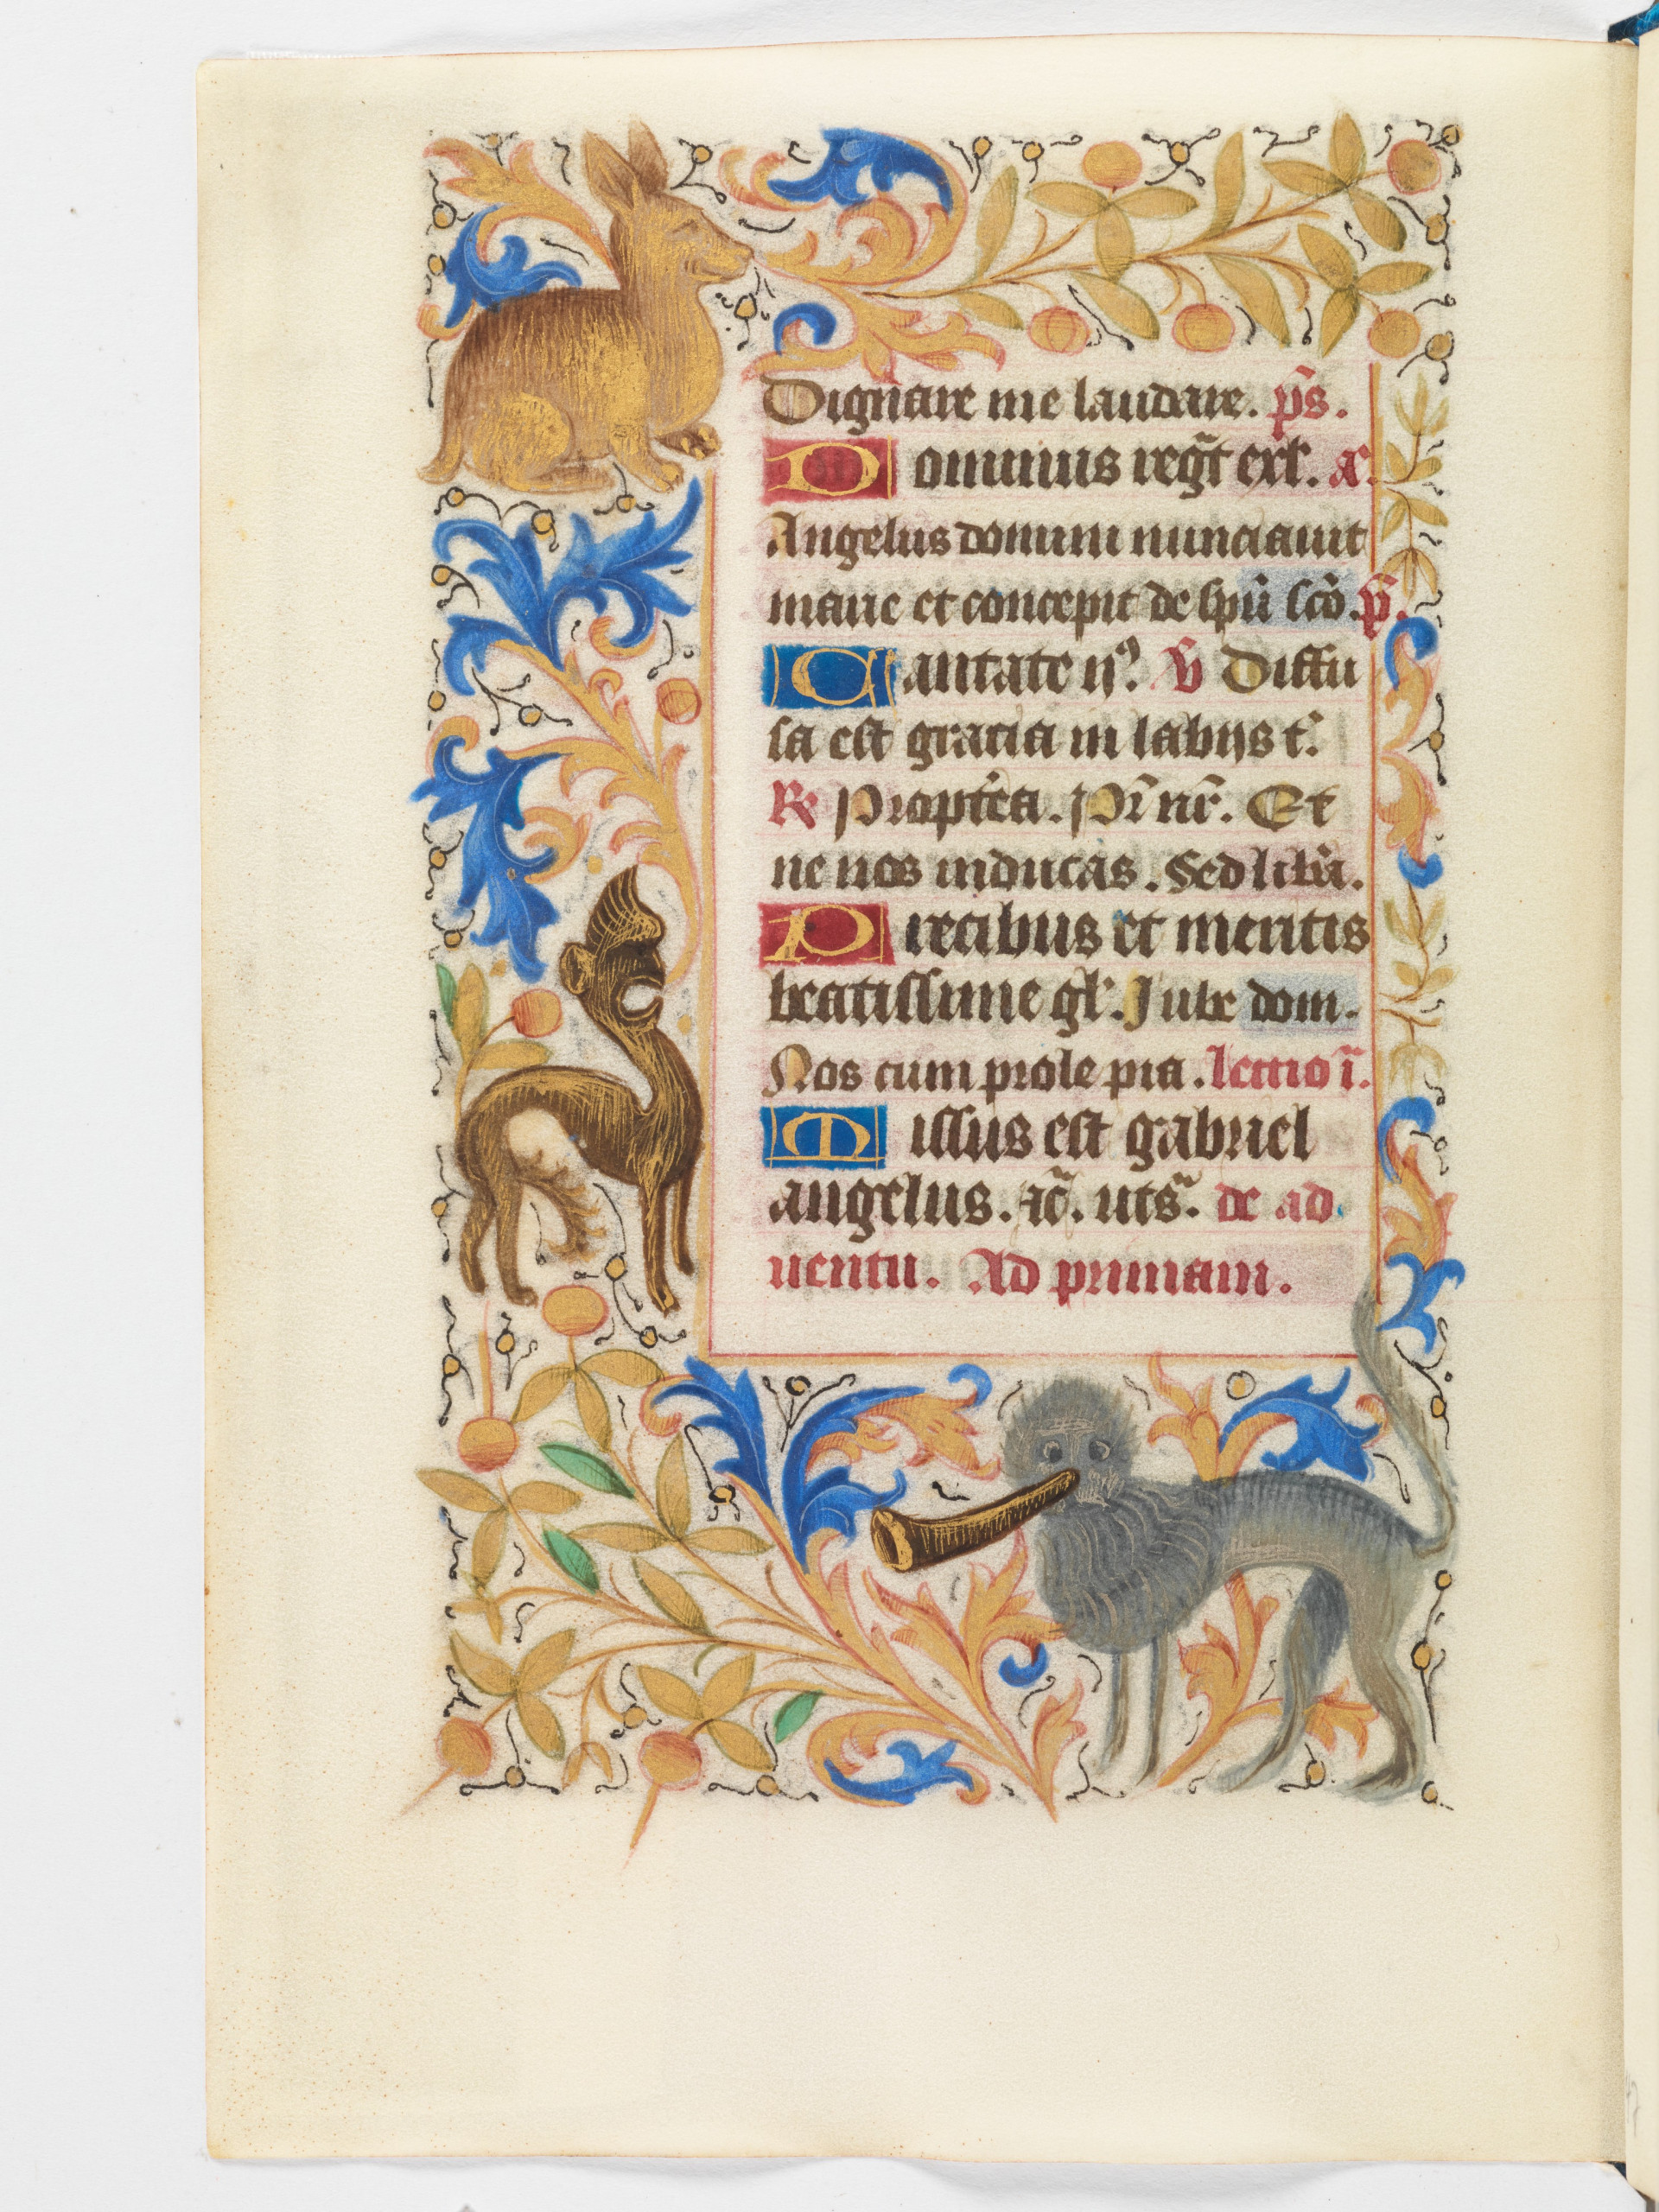 Dignare me laudare. p̄s.
Dominus reg̃t ex̃l. a.
Angelus domini nunciauit
marie et concepit de sp̄u sc̄o. p̄.
Cantate n.ͦ ꝟ Diffu
sa est gracia in labijs t.̉
℟ Propt̉ea. Pr̄ nr̄. Et
ne nos inducas. Sed lib̉a.
Precibus et meritis
beatissime gl̉. Jube dom.
Nos cum prole pia. lectio ı̄.
Missus est gabriel
angelus. ⁊c̄. uts̄. de ad
uentu. Ad primam.